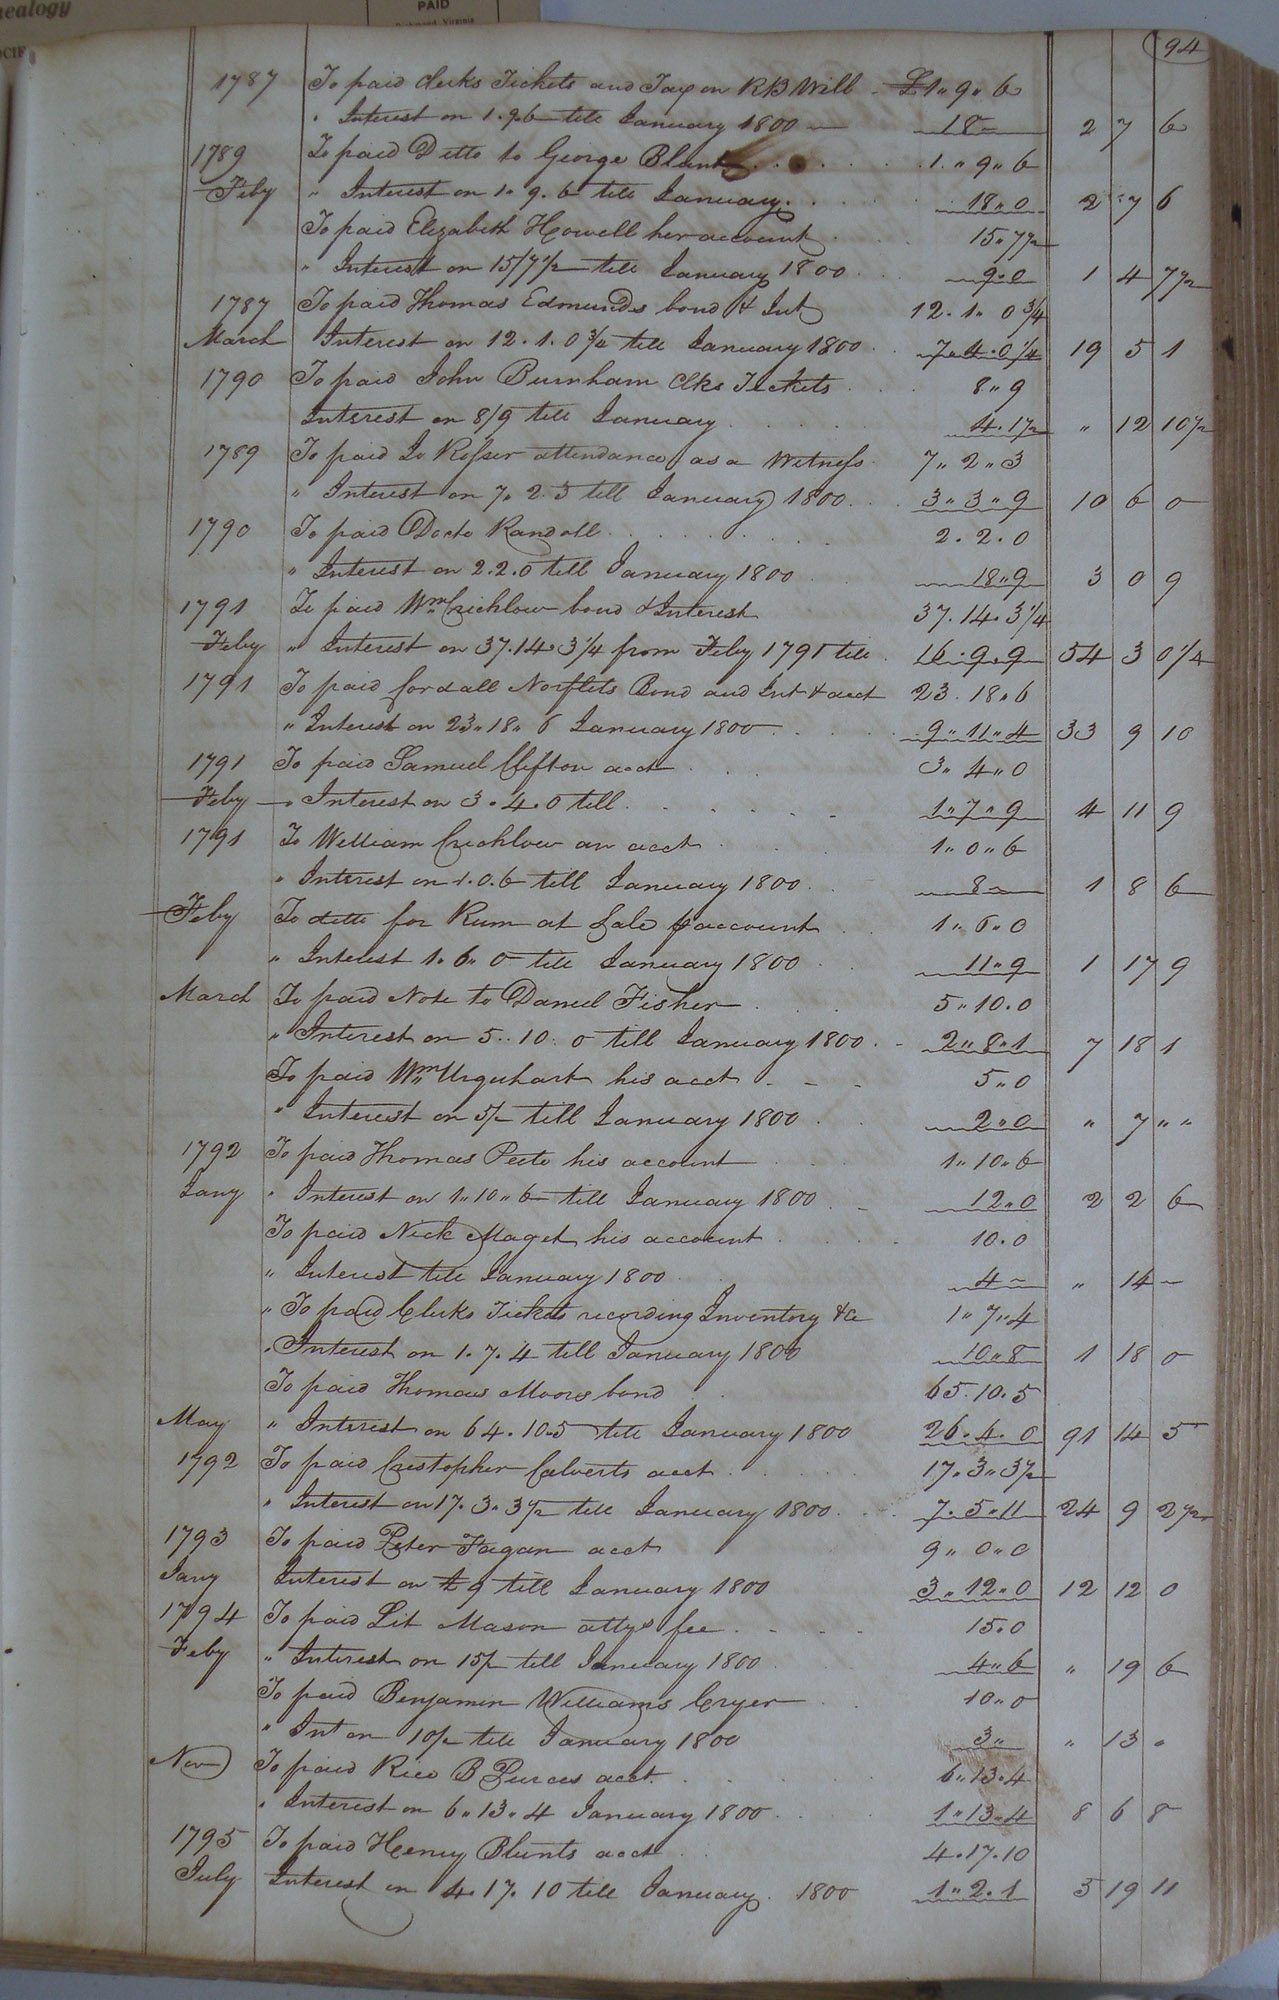 nealogy
OCIE
PAID
Richmond, Virginia
94
1787 To paid clerks Tickets and Tax on RB Will £1 " 9 " 6
" Interest on 1.9.6 till January 1800 18 - 2 7 6
1789 To paid Ditto to George Blunt 1 " 9 " 6
Feby " Interest on 1. 9. 6 till January 18 " 0 2 7 6
To paid Elizabeth Howell her account 15 " 7½
" Interest on 15/7½ till January 1800 9 " 0 1 4 7½
1787 To paid Thomas Edmunds bond & Int 12 . 1 " 0¾
March Interest on 12 . 1 . 0¾ till January 1800 7 . 4 . 0¼ 19 5 1
1790 To paid John Burnham Clks Tickets 8 " 9
Interest on 8/9 till January 4 . 1½ " 12 10½
1789 To paid Jo Rosser attendance as a Witness 7 " 2 " 3
" Interest on 7 . 2 . 3 till January 1800 3 " 3 " 9 10 6 0
1790 To paid Docto Randall 2 . 2 . 0
" Interest on 2.2.0 till January 1800 18 " 9 3 0 9
1791 To paid Wm Crichlow bond & Interest 37 . 14 . 3¼
Feby " Interest on 37.14.3¼ from Feby 1791 till 16 . 9 . 9 54 3 0¼
1791 To paid Cordall Norflets Bond and Int & acct 23 . 18 " 6
" Interest on 23 " 18 " 6 January 1800 9 " 11 " 4 33 9 10
1791 To paid Samuel Clifton acct 3 " 4 " 0
Feby " Interest on 3 . 4 . 0 till 1 " 7 " 9 4 11 9
1791 To William Crichlow an acct 1 " 0 " 6
" Interest on 1.0.6 till January 1800 8 - 1 8 6
Feby To ditto for Rum at Sale p account 1 " 6 " 0
" Interest 1 " 6 " 0 till January 1800 11 " 9 1 17 9
March To paid Note to Daniel Fisher 5 " 10 . 0
" Interest on 5 . 10 . 0 till January 1800 2 " 8 " 1 7 18 1
To paid Wm Urquhart his acct 5 " 0
" Interest on 5/ till January 1800 2 " 0 " 7 " "
1792 To paid Thomas Peete his account 1 " 10 " 6
Jany " Interest on 1 " 10 " 6 till January 1800 12 " 0 2 2 6
To paid Nick Maget his account 10 . 0
" Interest till January 1800 4 - " 14 -
" To paid Clerks Tickets recording Inventory &c 1 " 7 " 4
" Interest on 1 . 7 . 4 till January 1800 10 " 8 1 18 0
To paid Thomas Moores bond 65 . 10 . 5
May " Interest on 64 . 10.5 till January 1800 26 . 4 . 0 91 14 5
1792 To paid Cristopher Calverts acct 17 . 3 " 3½
" Interest on 17 . 3 . 3½ till January 1800 7 . 5 . 11 24 9 2½
1793 To paid Peter Fagan acct 9 " 0 " 0
Jany Interest on £9 till January 1800 3 " 12 " 0 12 12 0
1794 To paid Lit Mason attys fee 15 . 0
Feby " Interest on 15/ till January 1800 4 " 6 " 19 6
To paid Benjamin Williams Cryer 10 " 0
" Int on 10/ till January 1800 3 " " 13 "
Nov To paid Rice B Pierces acct 6 " 13 . 4
" Interest on 6 " 13 " 4 January 1800 1 " 13 " 4 8 6 8
1795 To paid Henry Blunts acct 4 . 17 . 10
July Interest on 4 . 17 . 10 till January 1800 1 " 2 . 1 5 19 11